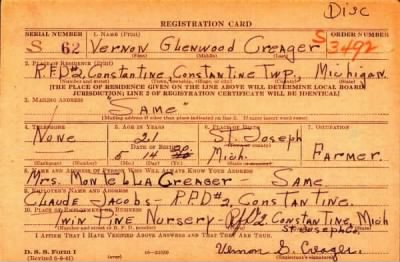 Disc
REGISTRATION CARD
SERIAL NUMBER 1. NAME (Print) ORDER NUMBER
S 62 Vernon Glenwood Creager S3492
(First) (Middle) (Last)
2. PLACE OF RESIDENCE (Print)
R.F.D#2, Constantine, Constantine Twp., Michigan.
[THE PLACE OF RESIDENCE GIVEN ON THE LINE ABOVE WILL DETERMINE LOCAL BOARD
JURISDICTION; LINE 2 OF REGISTRATION CERTIFICATE WILL BE IDENTICAL]
3. MAILING ADDRESS
"SAME"
[Mailing address if other than place indicated on line 2. If same insert word same]
4. TELEPHONE 5. AGE IN YEARS 6. PLACE OF BIRTH 7. OCCUPATION
None 21 St. Joseph
DATE OF BIRTH
5 14 20 Mich. Farmer.
(Exchange) (Number) (Mo.) (Day) (Yr.) (State or country)
8. NAME AND ADDRESS OF PERSON WHO WILL ALWAYS KNOW YOUR ADDRESS
Mrs. Montella Creager - Same
9. EMPLOYER'S NAME AND ADDRESS
Claude Jacobs - R.F.D#2, Constantine.
10. PLACE OF EMPLOYMENT OR BUSINESS
Twin Pine Nursery - R.F.D#2 Constantine, Mich
St. Joseph Co.
(Number and street or R. F. D. number) (Town)
I AFFIRM THAT I HAVE VERIFIED ABOVE ANSWERS AND THAT THEY ARE TRUE.
D. S. S. Form 1 Vernon G. Creager.
(Revised 6-9-41)